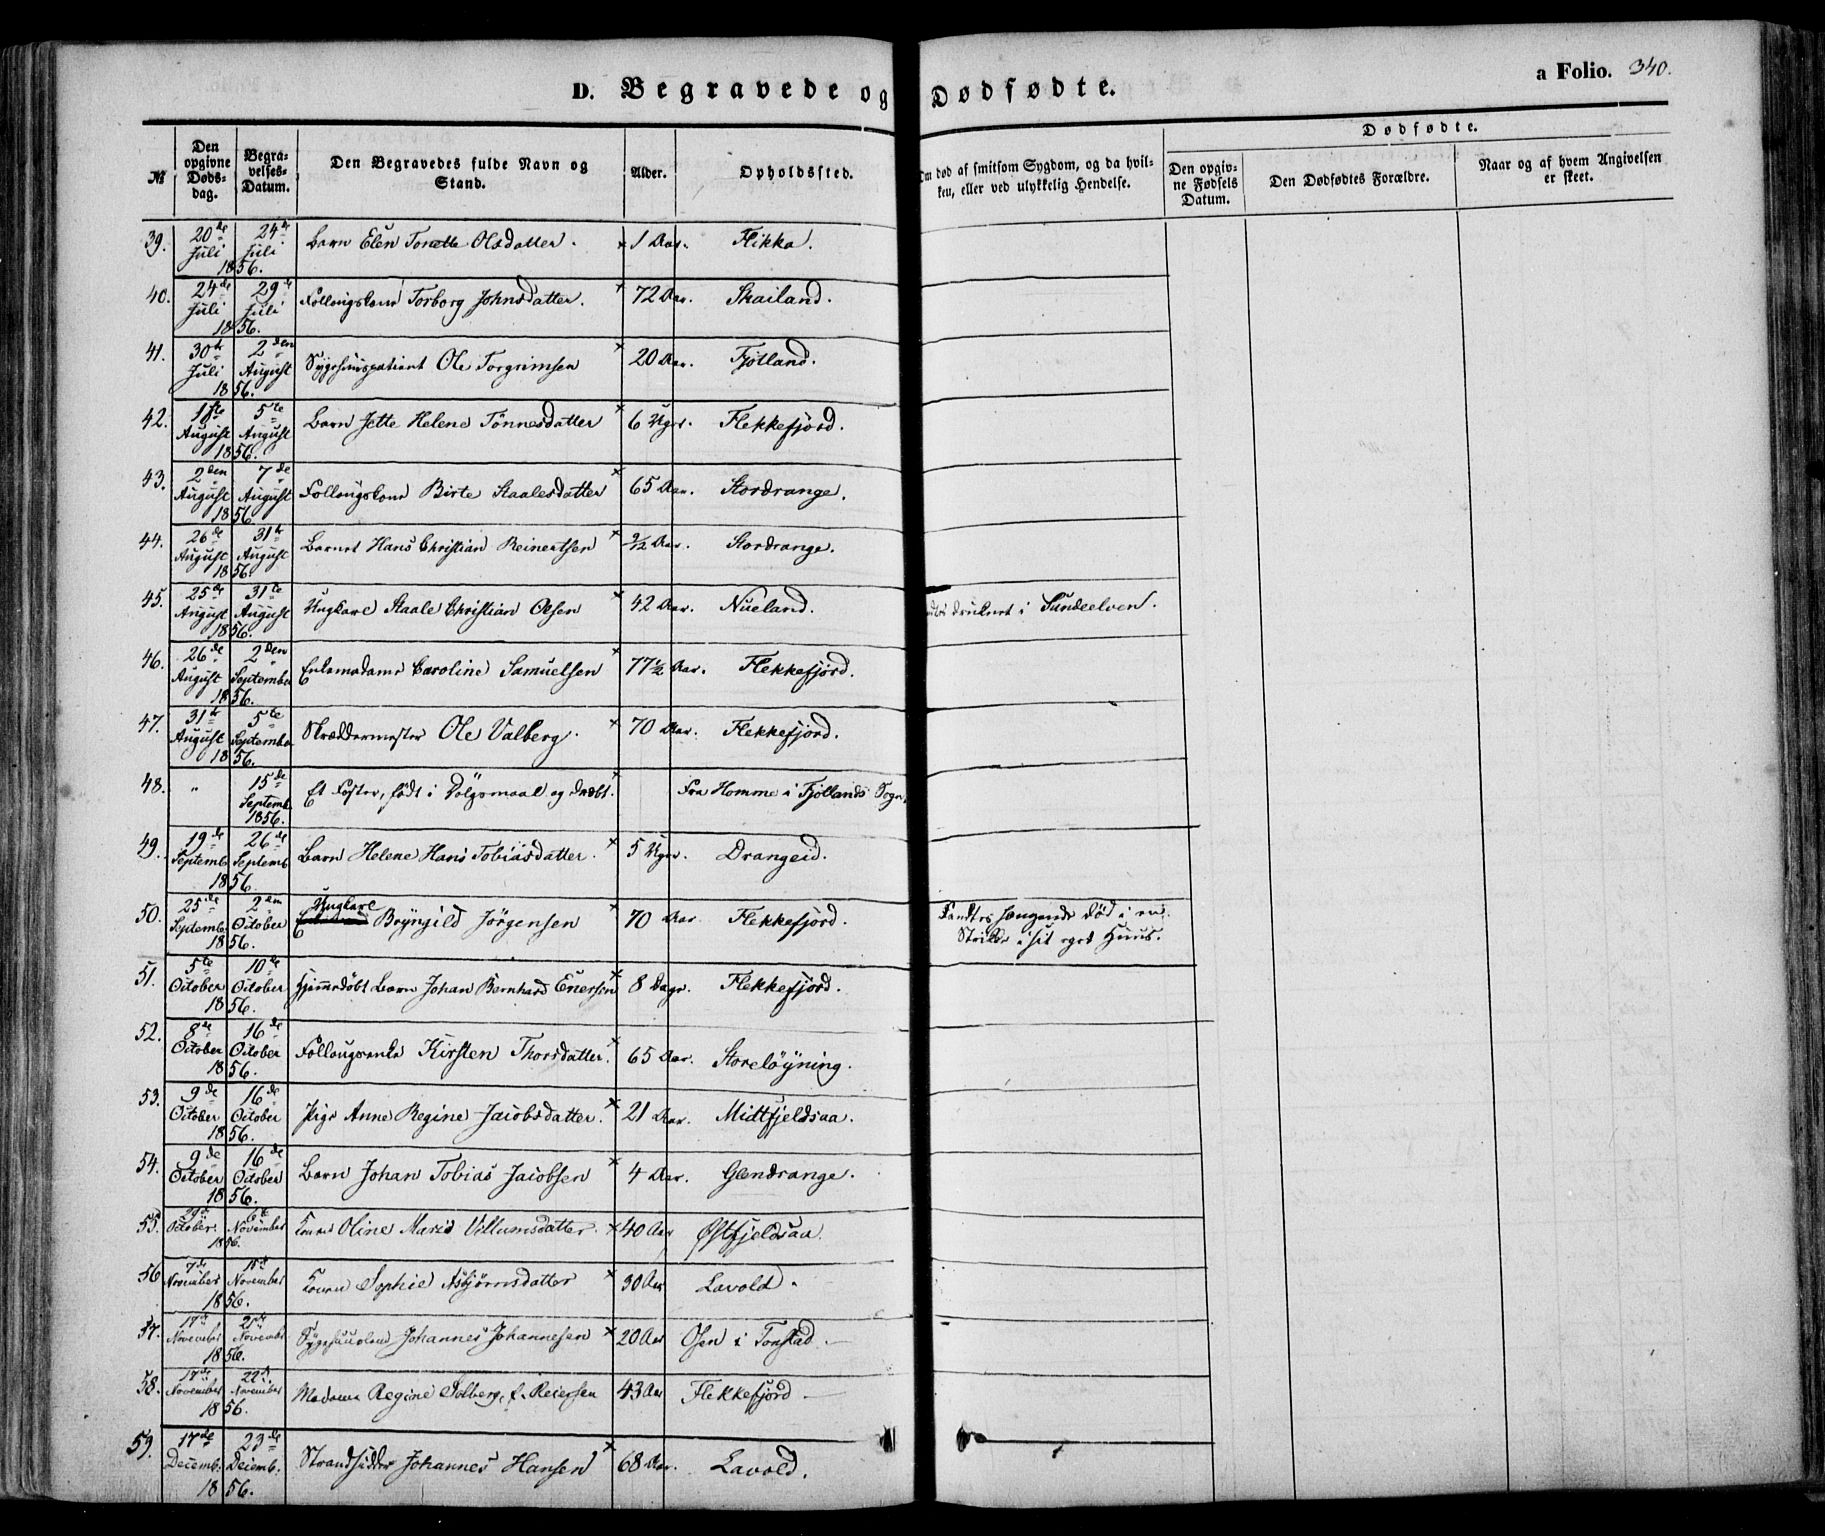 D. Begravede og Dødfødte.
a Folio. 340.
№
Den opgivne Døds-dag.
Begra-velses-Datum.
Den Begravedes fulde Navn og Stand.
Alder.
Opholdssted.
Om død af smitsom Sygdom, og da hvil-ken, eller ved ulykkelig Hendelse.
Dødfødte.
Den opgiv-ne Fødsels Datum.
Den Dødfødtes Forældre.
Naar og af hvem Angivelsen er skeet.
39. 20de Juli 24de Juli 1856. Barn Elen Tonette Olsdatter. × 1 Aar. Flikka.
40. 24de Juli 29de Juli 1856. Follougskone Torborg Johnsdatter. × 72 Aar. Skailand.
41. 30te Juli 2den August 1856. Sygehuuspatient Ole Torgrimsen × 20 Aar. Fjotland.
42. 1ste August 5te August 1856. Barn Jette Helene Tönnesdatter × 6 Uger. Flekkefjord.
43. 2den August 7de August 1856. Follougskone Birte Staalesdatter × 65 Aar. Stordrange.
44. 26de August 31te August 1856. Barnet Hans Christian Reinertsen × ½ Aar. Stordrange.
45. 25de August 31te August 1856. Ungkarl Staale Christian Olsen × 42 Aar. Nueland. druknet i Sundeelven.
46. 26de August 2den September 1856. Enkemadame Caroline Samuelsen × 77½ Aar. Flekkefjord.
47. 31te August 5te September 1856. Skræddermester Ole Valberg. × 70 Aar. Flekkefjord.
48. " 15de Septemb. 1856. Et Foster, født i Dölgsmaal og dræbt. × Fra Homme i Fjotlands Sogn.
49. 19de Septemb. 26de Septemb. 1856. Barn Helene Hans Tobiasdatter. × 5 Uger. Drangeid.
50. 25de Septemb. 2den October 1856. Ungkarl Bryngild Jörgensen × 70 Aar. Flekkefjord. Fandtes hængende död i en
Strikke i sit eget Huus.
51. 5te October 10de October 1856. Hjemmedöbt Barn Johan Bernhard Enersen × 8 Dage. Flekkefjord.
52. 8de October 16de October 1856. Follougsenke Kirsten Thorsdatter. × 65 Aar. Storelöyning.
53. 9de October 16de October 1856. Pige Anne Regine Jacobsdatter. × 21 Aar. Midtfjeldsaa.
54. 9de October 16de October 1856. Barn Johan Tobias Jacobsen × 4 Aar. Glendrange.
55. 29de October. 6te November 1856. Konen Oline Marie Villumsdatter. × 40 Aar Østfjeldsaa.
56 7de November 15de November 1856. Konen Sophie Asbjörnsdatter × 30 Aar Lavold.
57. 17de November 21de Novemb. 1856. Sygehuuslem Johannes Johannesen × 20 Aar Osen i Tonstad
58. 17de November 22de November 1856. Madame Regine Solberg, f. Reiersen 43 Aar Flekkefjord
59. 17de Decemb. 23de Decemb. 1856. Strandsidder Johannes Hansen × 68 Aar. Lavold.